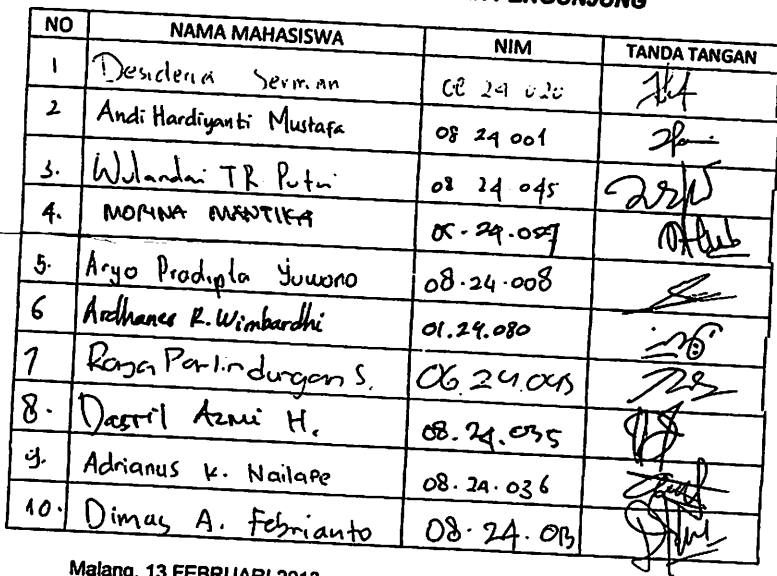 PENGUNJUNG
NO NAMA MAHASISWA NIM TANDA TANGAN
1 Desideria 24 020
2 Andi Hardiyanti Mustafa 08 24 001
3. Wulandari TR Putri 08 24 045
4. MORINA MANTIKA
5. Aryo Pradipta Yuwono 08.24.008
6 Ardhanes R. Wimbardhi 01.24.080
7 Raja Parlindungan S. 06.24.045
8. Dasril Azmi H. 08.24.035
9. Adrianus K. Nailape 08.24.036
10. Dimas A. Febrianto 08.24.013
Malang, 13 FEBRUARI 2013